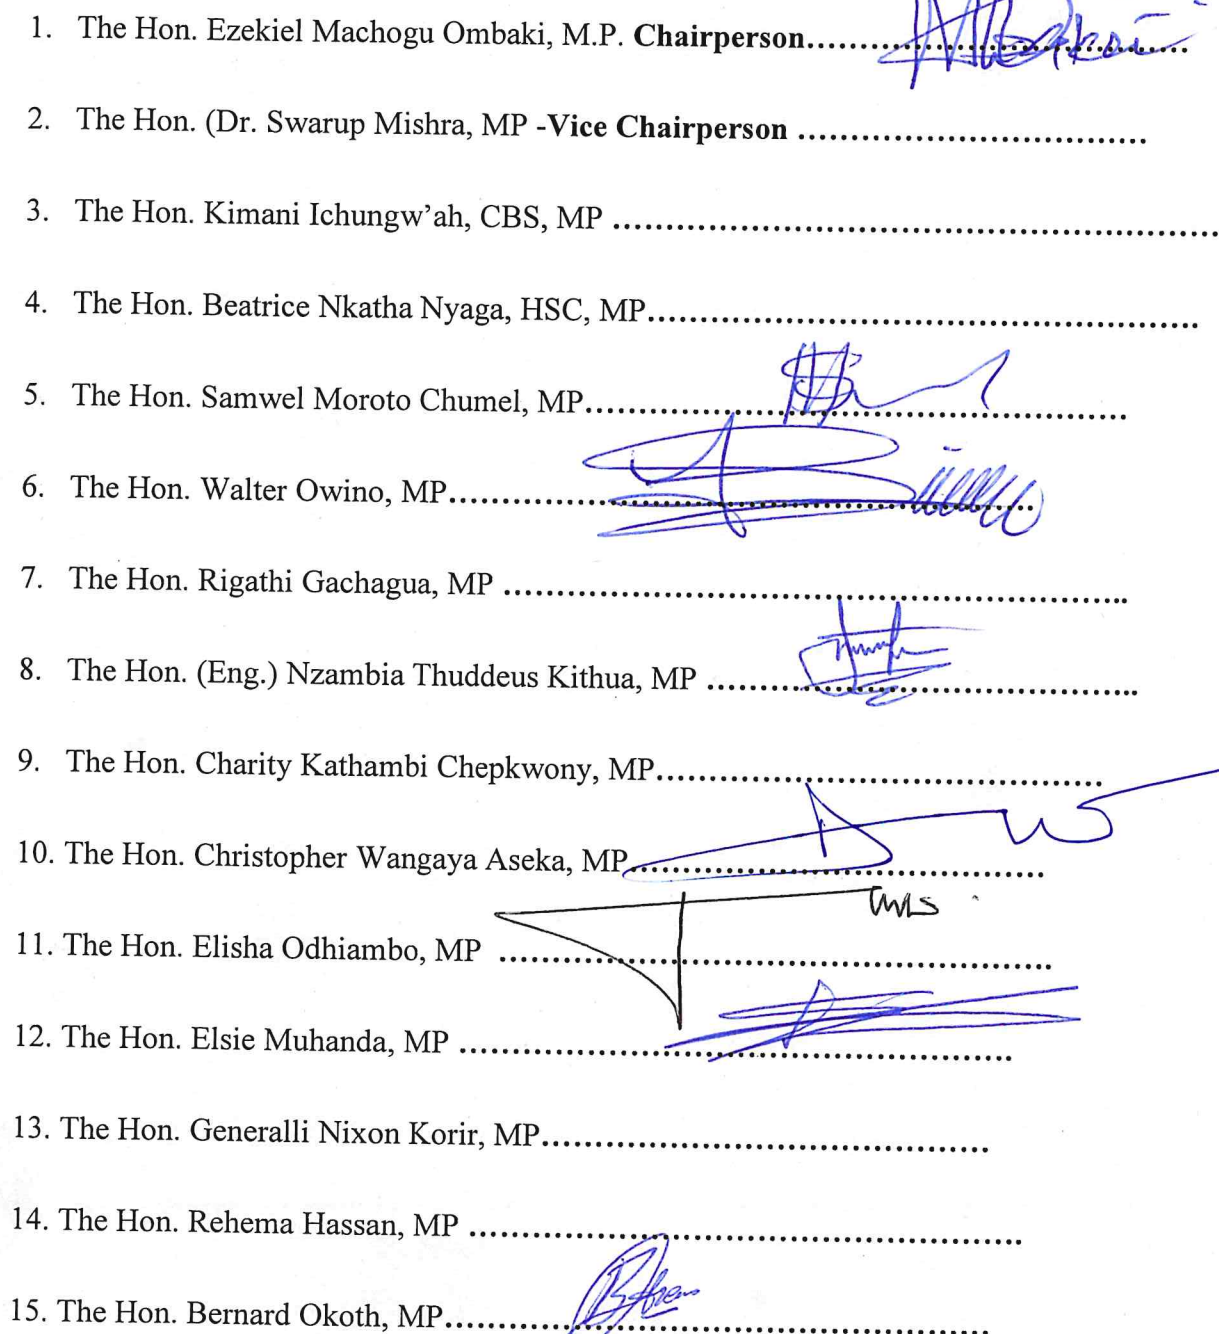 1. The Hon. Ezekiel Machogu Ombaki, M.P. Chairperson....................................
2. The Hon. (Dr. Swarup Mishra, MP -Vice Chairperson .................................
3. The Hon. Kimani Ichungw'ah, CBS, MP .........................................................
4. The Hon. Beatrice Nkatha Nyaga, HSC, MP....................................................
5. The Hon. Samwel Moroto Chumel, MP...................................................
6. The Hon. Walter Owino, MP.......................................................
7. The Hon. Rigathi Gachagua, MP ...........................................................
8. The Hon. (Eng.) Nzambia Thuddeus Kithua, MP .........................................
9. The Hon. Charity Kathambi Chepkwony, MP..........................................
10. The Hon. Christopher Wangaya Aseka, MP.......................................
11. The Hon. Elisha Odhiambo, MP ....................................................
12. The Hon. Elsie Muhanda, MP ....................................................
13. The Hon. Generalli Nixon Korir, MP..........................................
14. The Hon. Rehema Hassan, MP ....................................................
15. The Hon. Bernard Okoth, MP...................................................